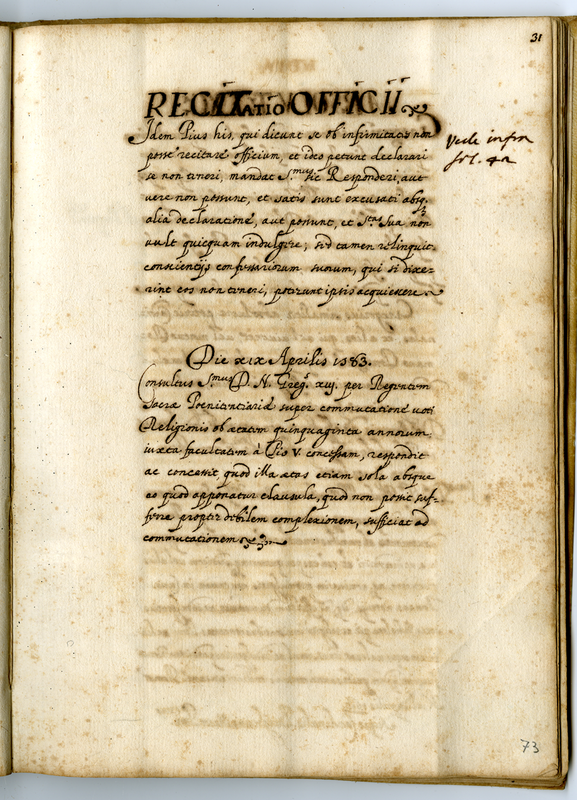 31
RECITATIO OFFICII
Idem Pius his, qui dicunt se ob infirmitatem non
posse recitare officium, et ideo petunt declarari
se non teneri, mandat S.mus sic Responderi, aut
vere non possunt, et satis sunt excusati absq.
alia declaratione, aut possunt, et S.tas Sua non
vult quicquam indulgere; sed tamen relinquit
conscientijs confessariorum suorum, qui si dixe-
rint eos non teneri, poterunt ipsis acquiescere
Vide infra
fol. 42
Die xix Aprilis 1583.
Consultus S.mus D. N. Greg. xiij. per Regentem
Sacræ Poenitentiariæ super commutatione voti
Religionis ob ætatem quinquaginta annorum,
iuxta facultatem à Pio V. concessam, respondit
ac concessit, quod illa ætas etiam sola absque
eo quod apponatur clausula, quod non possit suf-
ferre propter debilem complexionem, sufficiat ad
commutationem
73